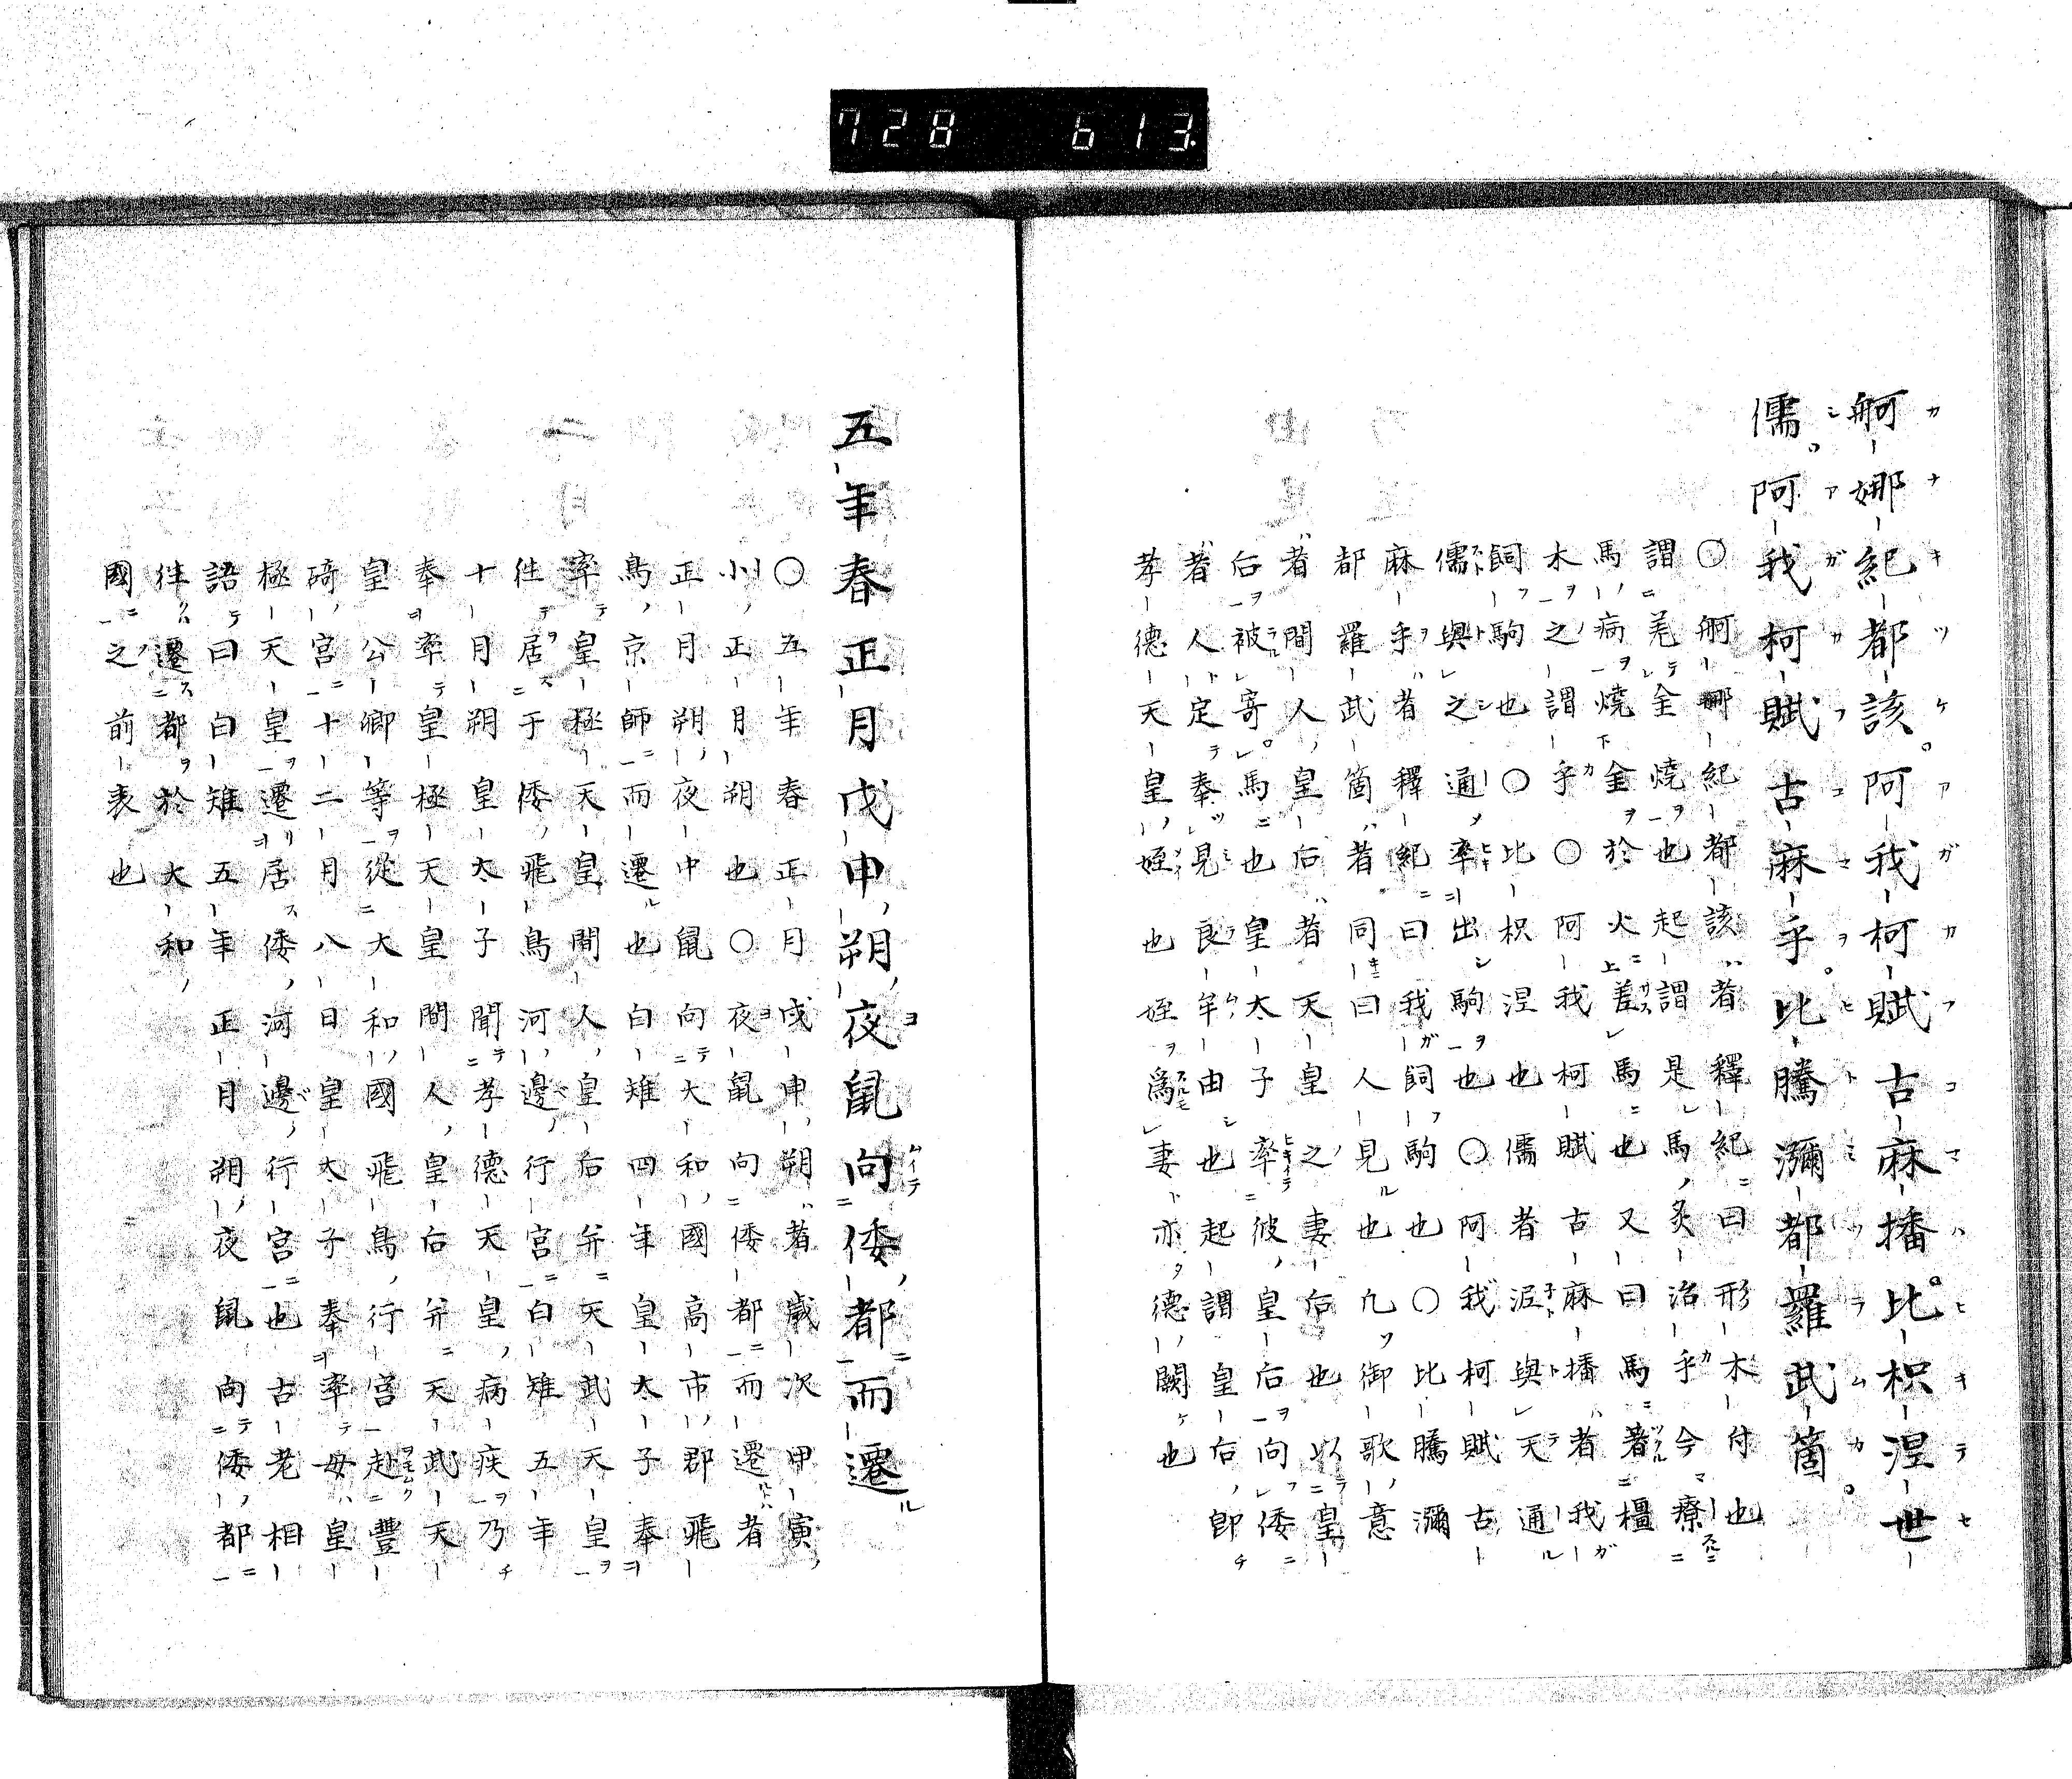 728 613
舸娜紀都該阿我柯賦古麻播比枳涅世
儒阿我柯賦古麻乎比騰瀰都羅武箇
○舸娜紀都該者釋紀曰形木付也
謂羌金燒也起謂是馬炙治乎今療
馬病燒金於火差馬也又曰馬著橿
木之謂乎○阿我柯賦古麻播者我
飼駒也○比枳涅也儒者泥與天通
儒與之通率出駒也○阿我柯賦古
麻乎者釋紀曰我飼駒也○比騰瀰
都羅武箇者同曰人見也凡御歌意
者間人皇后者天皇之妻后也以皇
后被寄馬也皇太子率彼皇后向倭
者人定奉見良牟由也起謂皇后即
孝德天皇姪也姪爲妻亦德闕也
五年春正月戊申朔夜鼠向倭都而遷
○五年春正月戊申朔者歲次甲寅
小正月朔也○夜鼠向倭都而遷者
正月朔夜中鼠向大和國高市郡飛
鳥京師而遷也白雉四年皇太子奉
率皇極天皇間人皇后并天武天皇
往居于倭飛鳥河邊行宮白雉五年
十月朔皇太子聞孝德天皇病疾乃
奉率皇極天皇間人皇后并天武天
皇公卿等從大和國飛鳥行宮赴豐
碕宮十二月八日皇太子奉率母皇
極天皇遷居倭河邊行宮也古老相
語曰白雉五年正月朔夜鼠向倭都
往遷都於大和
國之前表也